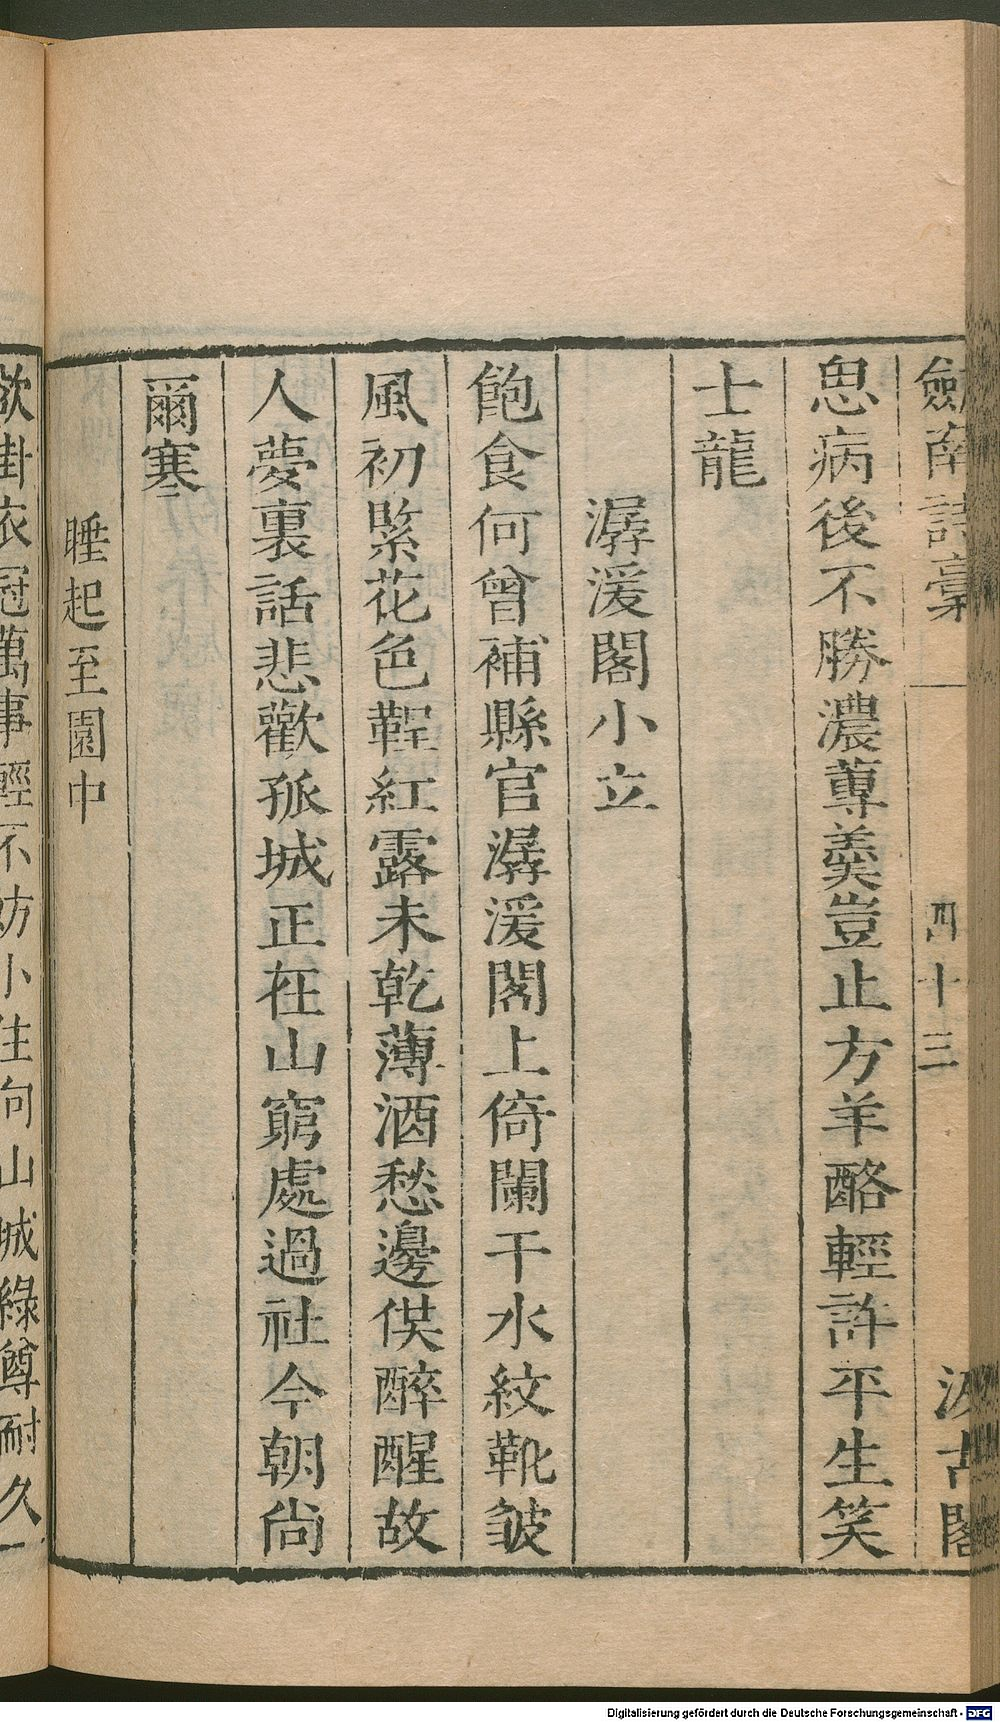 劒南詩稾 四十三 汲古閣
思病後不勝濃蓴羹豈止方羊酪輕許平生笑
士龍
潺湲閣小立
飽食何曾補縣官潺湲閣上倚闌干水紋靴皱
風初緊花色鞓紅露未乾薄酒愁邊偰醉醒故
人夢裏話悲歡孤城正在山窮處過社今朝尙
爾寒
睡起至園中
欲掛衣冠萬事輕不妨小住向山城綠罇耐久
Digitalisierung gefördert durch die Deutsche Forschungsgemeinschaft - DFG